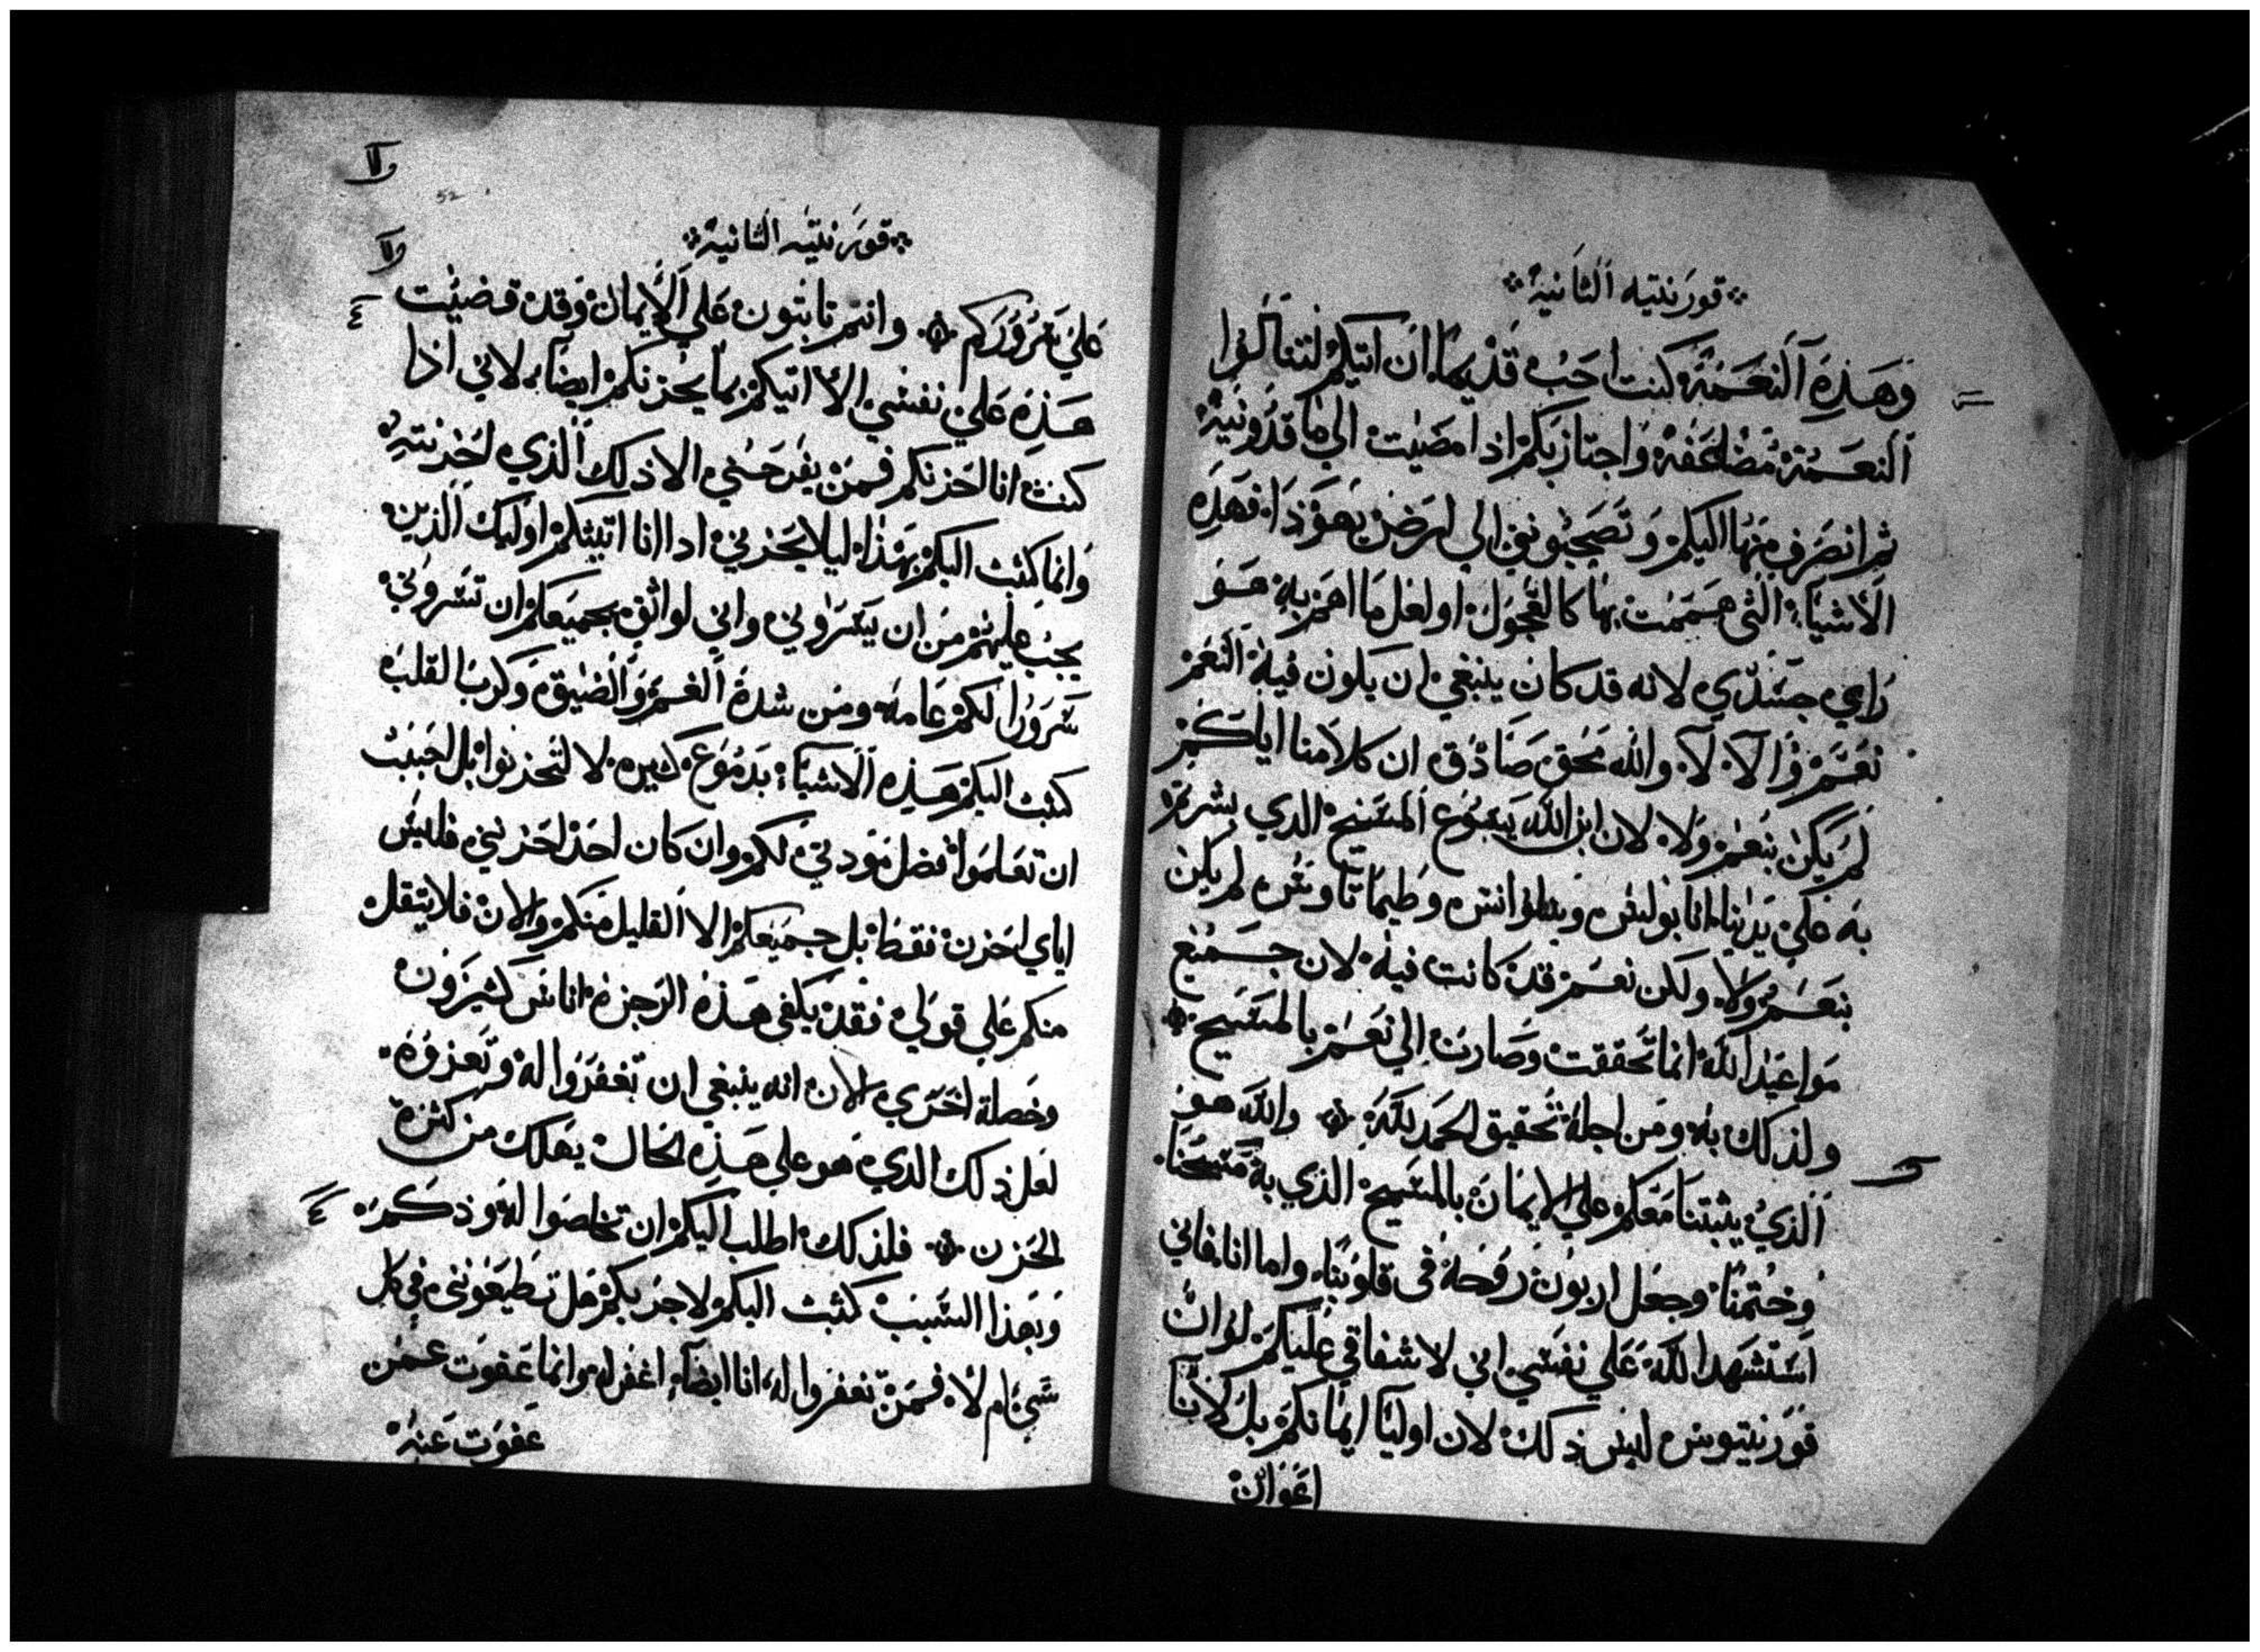 قورنتيه الثانية
وهذه النعمة كنت احب قديما ان اتيكم لتنالوا
النعمة مضاعفة واجتاز بكم اذا مضيت الى ماقدونية
ثم انصرف منها اليكم وتصحبونني الي ارض يهوذا فهذه
الاشياء التي هممت بها كالعجول او لعل ما اهم به هو
راي جسدي لانه قد كان ينبغي ان يكون فيه النعم
نعم والا لا والله محق صادق ان كلامنا اياكم
لم يكن بنعم ولا لان ابن الله يسوع المسيح الدي بشرتم
به علي يدينا انا بولس وسلوانس وطيماتاوس لم يكن
بنعم ولا ولكن نعم قد كانت فيه لان جميع
مواعيد الله انما تحققت وصارت الي نعم بالمسيح
ولذلك به ومن اجله تحقيق الحمد لله والله هو
الذي يثبتنا معكم علي الايمان بالمسيح الذي به مسحنا
وختمنا وجعل اربون روحه في قلوبنا واما انا فاني
استشهد الله علي نفسي اني لاشفاقي عليكم لم ات
قورنتيوس ليس ذلك لان اوليا ايمانكم بل لاننا
اعوان
ولا
52
قورنتيه الثانية
ولا
علي سروركم وانتم ثابتون علي الايمان وقد قضيت
هذه علي نفسي الا اتيكم بما يحزنكم ايضا لاني اذا
كنت انا احزنكم فمن يفرحني الا ذلك الذي احزنته
وانما كتبت اليكم بهذا ليلا يحزني ادا انا اتيتكم اوليك الذين
يجب عليهم من ان يسروني واني لواثق بجميعكم ان تسروني
سرورا لكم عامه ومن شدة الغم والضيق وكرب القلب
كتبت اليكم هذه الاشياء بدموع كثيره لا لتحزنوا بل احببت
ان تعلموا فضل مودتي لكم وان كان احد احزنني فليس
اياي احزن فقط بل جميعكم الا القليل منكم والان فلا يتقل
منكم علي قولي فقد يكفي هذه الزجرة اناس كثيرون
وخصلة اخري الان انه ينبغي ان تغفروا له وتعزوه
لعل ذلك الدي هو علي هذه الحال يهلك من كثرة
الحزن فلذلك اطلب اليكم ان تخلصوا له ودكم
وبهذا السبب كتبت اليكم لاجربكم هل تطيعونني في كل
شي ام لا فمن تغفروا له انا ايضا اغفر له وانما عفوت عمن
عفوت عنه